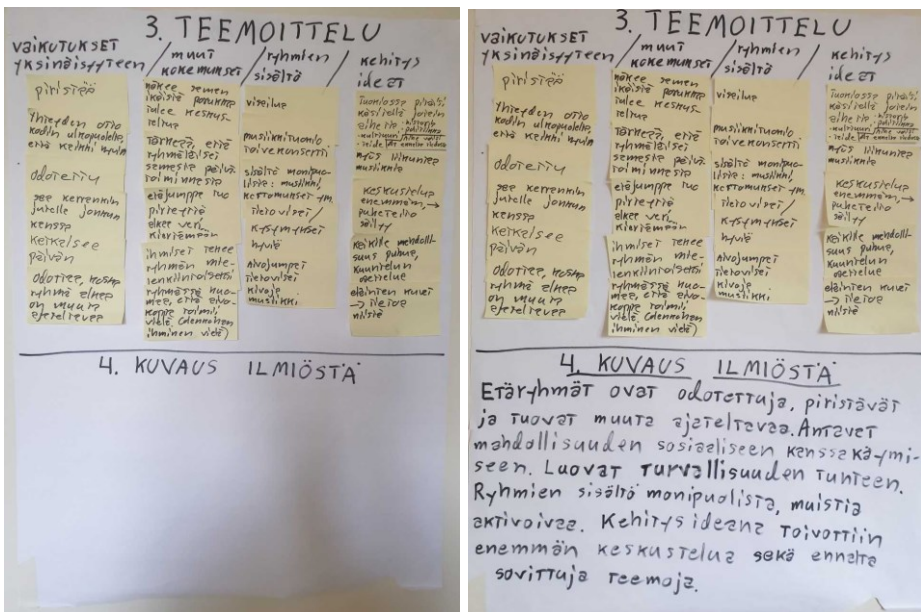 3. TEEMOITTELU
VAIKUTUKSET
YKSINÄISYYTEEN
/ MUUT
KOKEMUKSET
/ RYHMIEN
SISÄLTÖ
/ KEHITYS
IDEAT
piristää
Yhteyden otto
kodin ulkopuolelta,
että keikki hyvin
odotettu
see kerrankin
jutella jonkun
kanssa
Keikelsee
päivän
odottaa, koska
ryhmä alkaa
on muuta
ajateltavaa
näkee saman
ikäistä porukkaa
tulee keskus-
telua
Tärkeää, että
ryhmäläiset
samasta päivä-
toiminnasta
etäjumppa tuo
pirteyttä
alkaa veri
kiertämään
ihmiset tekee
ryhmän mie-
lenkiintoiseksi
ryhmässä huo-
maa, että aivo-
koppa toimii
vielä (olenkohan
ihminen vielä)
visailua
musiikkituomio
Toivekonsertti
sisältö monipuo-
lista: musiikki,
kertomukset ym.
tietovisat/
kysymykset
hyviä
Aivojumpat
tietovisat
kivoja
musiikki
Tuonlossa pitäisi
käsitellä jotain
aiheita
myös liikuntaa
musiikkia
keskustelua
enemmän, →
puheteito
säilyy
Kaikille mahdolli-
suus puhua,
kuuntelun
opettelua
eläinten kuvat
→ tietoa
niistä
4. KUVAUS ILMIÖSTÄ
3. TEEMOITTELU
VAIKUTUKSET
YKSINÄISYYTEEN
/ MUUT
KOKEMUKSET
/ RYHMIEN
SISÄLTÖ
/ KEHITYS
IDEAT
piristää
Yhteyden otto
kodin ulkopuolelta,
että keikki hyvin
odotettu
see kerrankin
jutella jonkun
kanssa
Keikelsee
päivän
odottaa, koska
ryhmä alkaa
on muuta
ajateltavaa
näkee saman
ikäistä porukkaa
tulee keskus-
telua
Tärkeää, että
ryhmäläiset
samasta päivä-
toiminnasta
etäjumppa tuo
pirteyttä
alkaa veri
kiertämään
ihmiset tekee
ryhmän mie-
lenkiintoiseksi
ryhmässä huo-
maa, että aivo-
koppa toimii
vielä (olenkohan
ihminen vielä)
visailua
musiikkituomio
Toivekonsertti
sisältö monipuo-
lista: musiikki,
kertomukset ym.
tietovisat/
kysymykset
hyviä
Aivojumpat
tietovisat
kivoja
musiikki
Tuonlossa pitäisi
käsitellä jotain
aiheita
myös liikuntaa
musiikkia
keskustelua
enemmän, →
puheteito
säilyy
Kaikille mahdolli-
suus puhua,
kuuntelun
opettelua
eläinten kuvat
→ tietoa
niistä
4. KUVAUS ILMIÖSTÄ
Etäryhmät ovat odotettuja, piristävät
ja tuovat muuta ajateltavaa. Antavat
mahdollisuuden sosiaaliseen kanssakäymi-
seen. Luovat turvallisuuden tunteen.
Ryhmien sisältö monipuolista, muistia
aktivoivaa. Kehitys ideana toivottiin
enemmän keskustelua sekä ennalta
sovittuja teemoja.